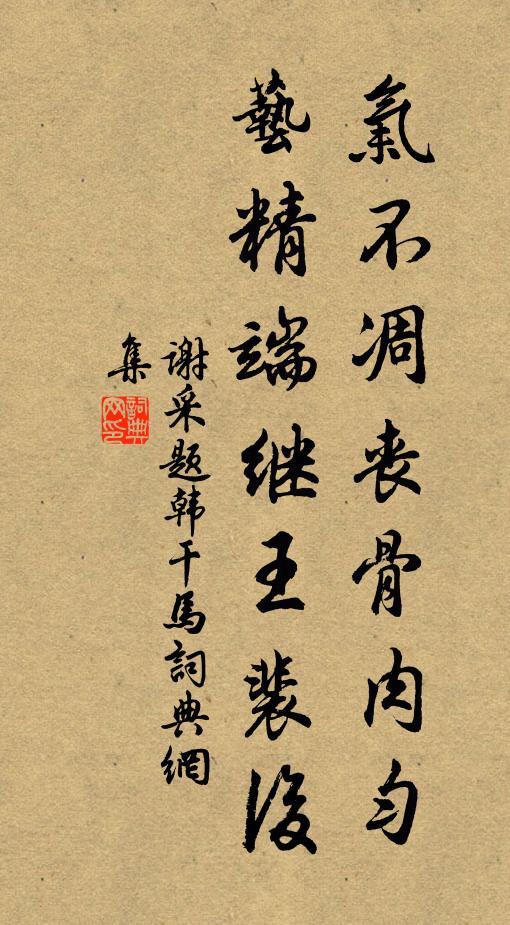 氣不凋丧骨肉勻
藝精端继王裴後
谢采题韩干馬詞典網
集
詞典网印